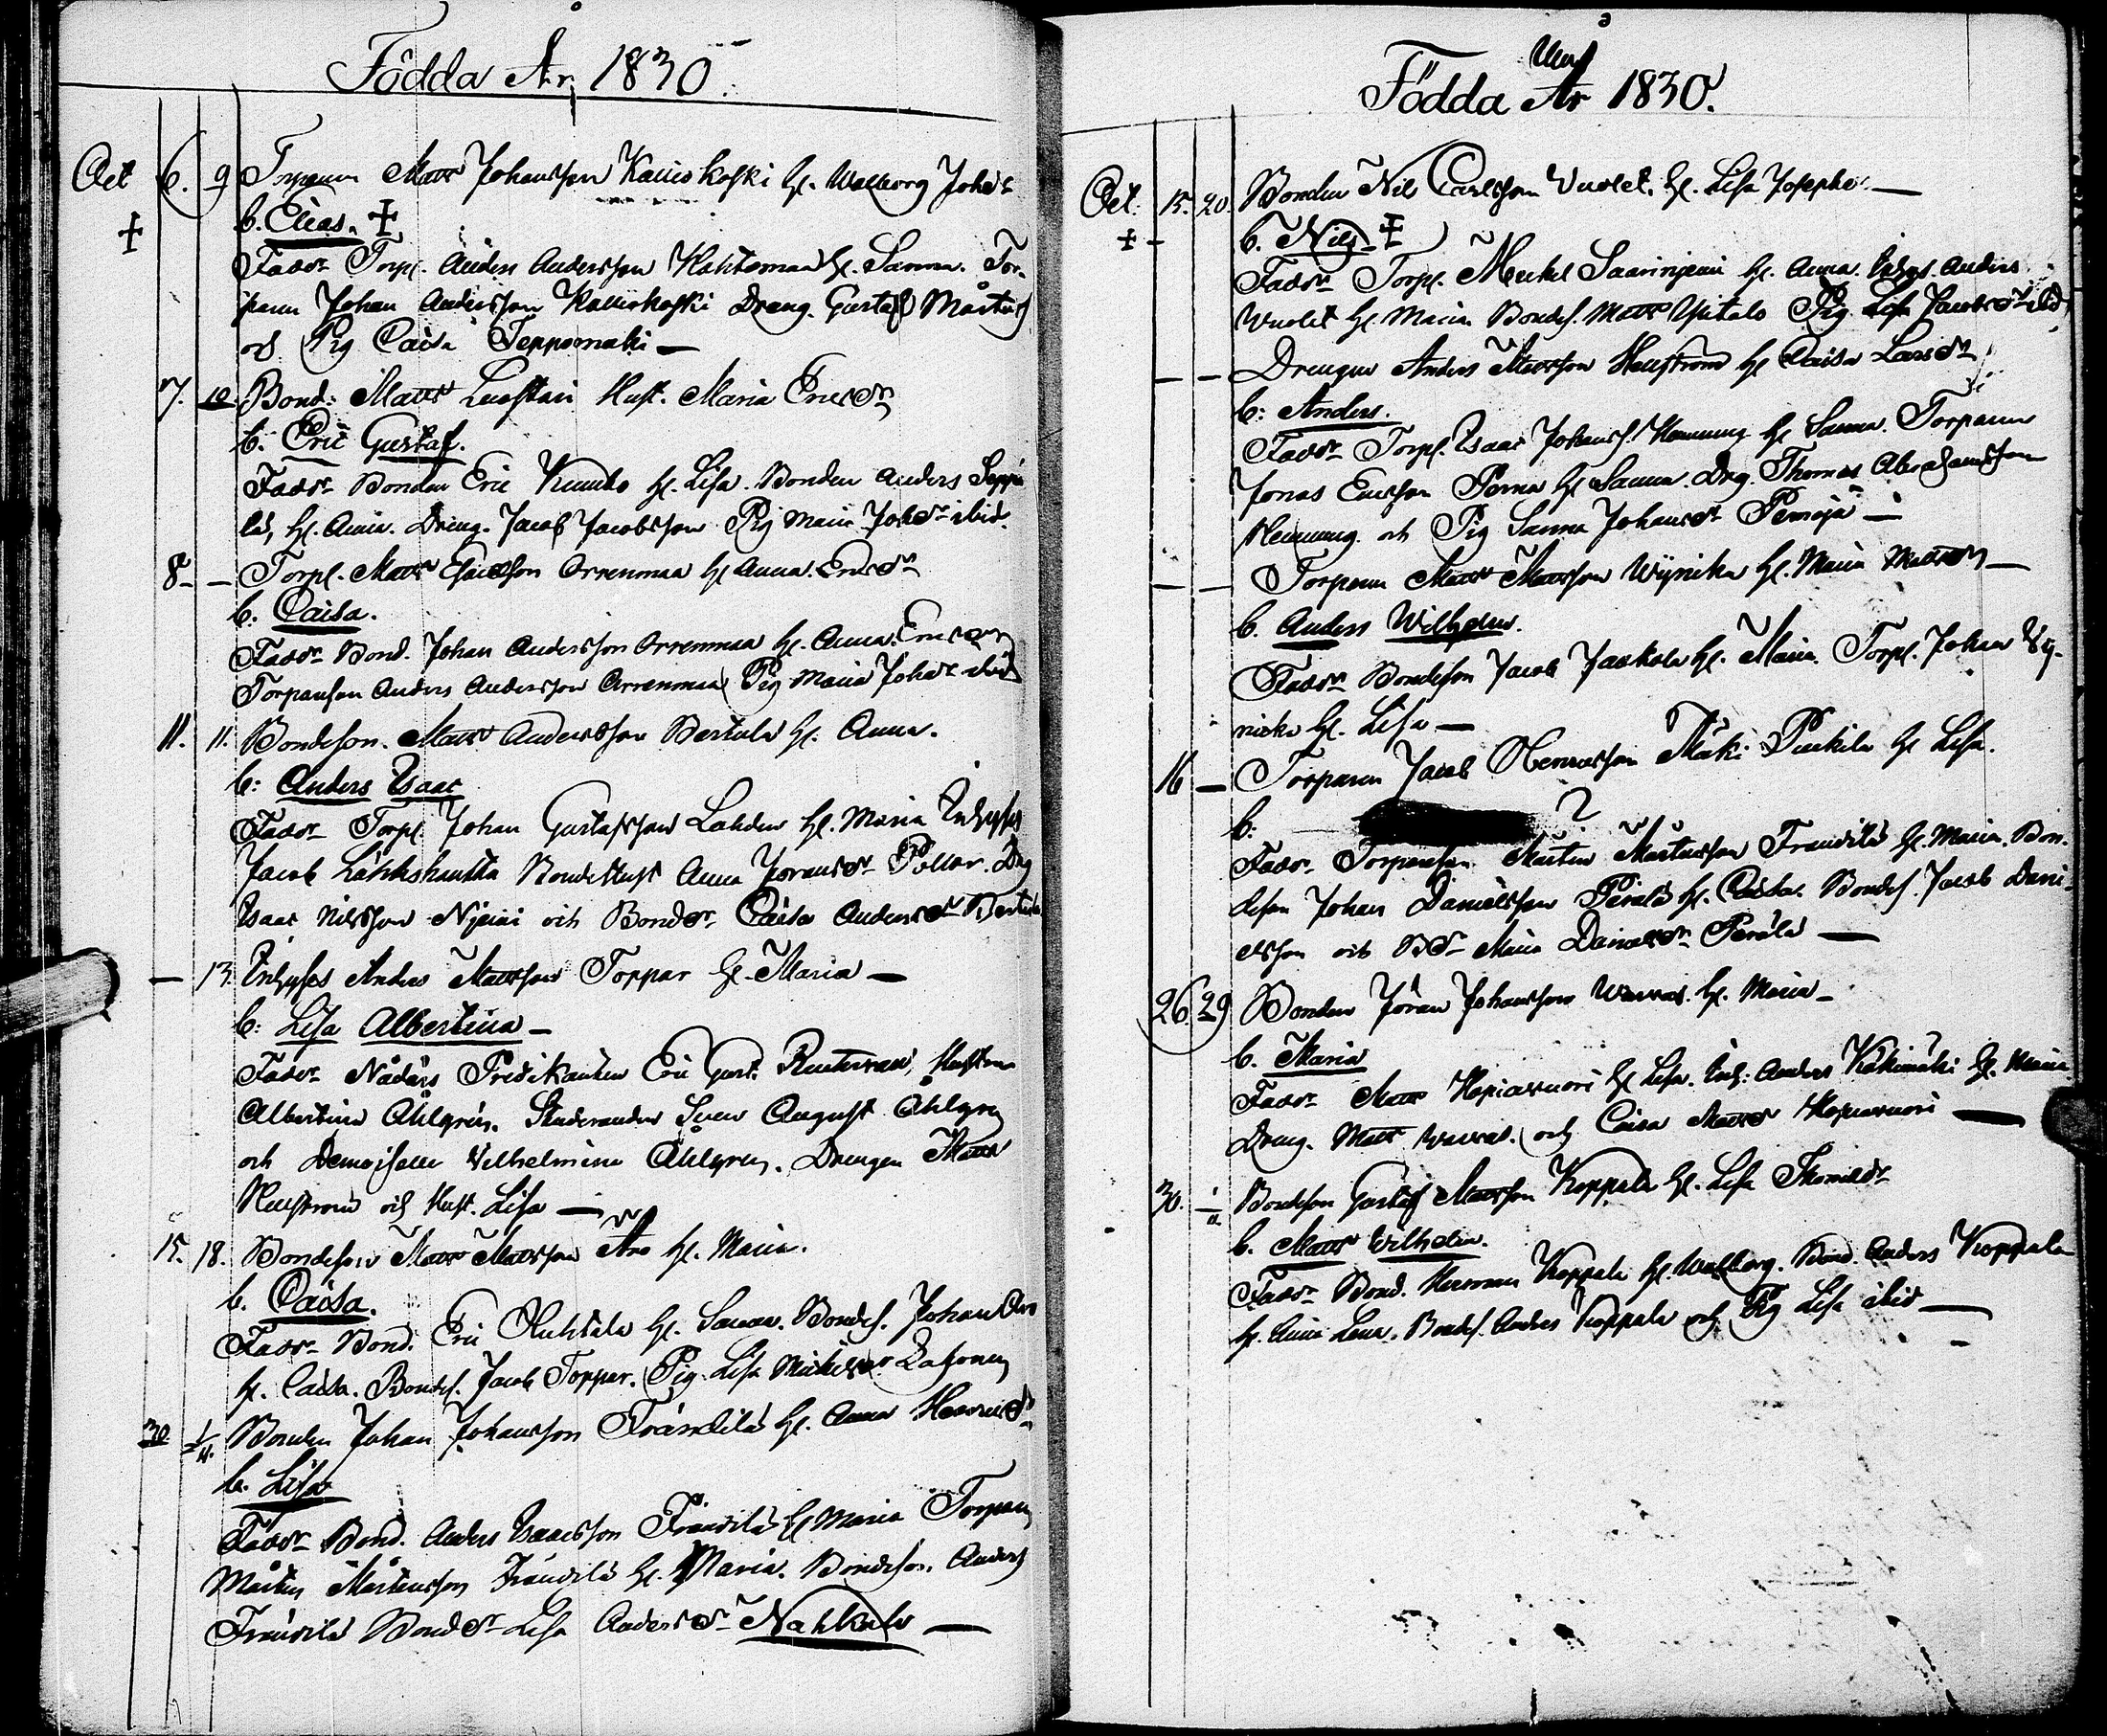 Födda År 1830.
Oct 6. 9 Torparen Matts Johansson Kauiokoski h. Walborg Johsdr
b. Elias. ‡
‡
Faddr Torp. Anders Andersson Hahtomaa h. Sanna. Tor-
paren Johan Andersson Kauiokoski Dräng. Gustaf Mårtens
och Pig Caisa Seppomäki —
7. 10. Bond: Matts Hust. Maria Ericsdr
b. Eric Gustaf.
Faddr Bonden Eric h. Lisa. Bonden Anders Seppä
lä, h. Anna. Dräng. Jacob Jacobsson Pig Maria Johsdr ibid.
8. — Torp. Matts Orrenmaa h. Anna. Ericsdr
b. Caisa.
Faddr Bond. Johan Andersson Orrenmaa h. Anna. Ericsdr
Torparson Anders Andersson Orrenmaa Pig Maria Johsdr ibid
11. 11. Bondeson. Matts Andersson Bertula h. Anna.
b: Anders Isaac
Faddr Torp. Johan Gustafsson Lahden h. Maria Inhyses
Jacob Bondehust Anna Pollar. Dräng
Isaac Nilsson och Bondedr Caisa Andersdr Bertula
— 13. Inhyses Anders Mattsson Toppar h. Maria —
b: Lisa Albertina —
Faddr Nådårs Predikanten Eric Gust. Hustrun
Albertina Åhlgren. Studeranden Sven August Åhlgren
och Demoiselle Vilhelmina Åhlgren. Drengen Matts
och Hust. Lisa —
15. 18. Bondeson Matts Mattsson Aro h. Maria.
b. Caisa.
Faddr Bond. Eric Huhtala h. Sanna. Bondes. Johan Aro
h. Caisa. Bondes. Jacob Toppar. Pig. Lisa Mickelsdr
30. 1/11. Bonden Johan Johansson Frändilä h. Anna Henricsdr
b. Lisa
Faddr Bond. Anders Isaacsson Frändilä h. Maria Torparen
Mårten Mårtensson Frändilä h. Maria. Bondeson. Anders
Frändilä Bonddr Lisa Andersdr Nahkala —
Födda År 1830.
Oct. 15. 20. Bonden Nils Carlsson Vuolet. h. Lisa Josephsdr —
‡ — b. Nils ‡
Faddr Torp. Mickel Saarinjemi h. Anna. Inhys. Anders
Wuolet h. Maria Bondes. Matts Ypitalo Pig Lisa Jacobsdr ibid
— — Drengen Anders Mattsson h. Caisa Larsdr
b: Anders.
Faddr Torp. Isaac Johans. Hemming h. Sanna. Torparen
Jonas Ericsson Perna h. Sanna. Drg. Thomas Abrahamsson
Hemming och Pig Sanna Johansdr —
— — Torparen Matts Mattsson Wijnicka h. Maria Mattsdr —
b. Anders Wilhelm.
Faddr Bondeson Jacob Jaskola h. Maria. Torp. Johan Vij-
nicka h. Lisa —
16 — Torparen Jacob Henricsson Mäki h. Lisa.
b: ?
Faddr Torparson Mårten Mårtensson Frändilä h. Maria. Bon-
deson Johan Danielsson Perälä h. Caisa. Bondes. Jacob Dani-
elsson och Bdr Maria Danielsdr Perälä —
26. 29 Bonden Jöran Johansson h. Maria —
b. Maria
Faddr Matts Hopiavuori h. Lisa. Inh: Anders Käkimäki h. Maria.
Dreng. Matts och Caisa Mattsdr Hopiavuori —
30. 1/11 Bondeson Gustaf Mattsson Koppala h. Lisa Thomasdr
b. Matts Wilhelm.
Faddr Bond. Herman Koppala h. Walborg. Bond. Anders Koppala
h. Anna Lena. Bondes. Anders Koppala och Pig Lisa ibid —